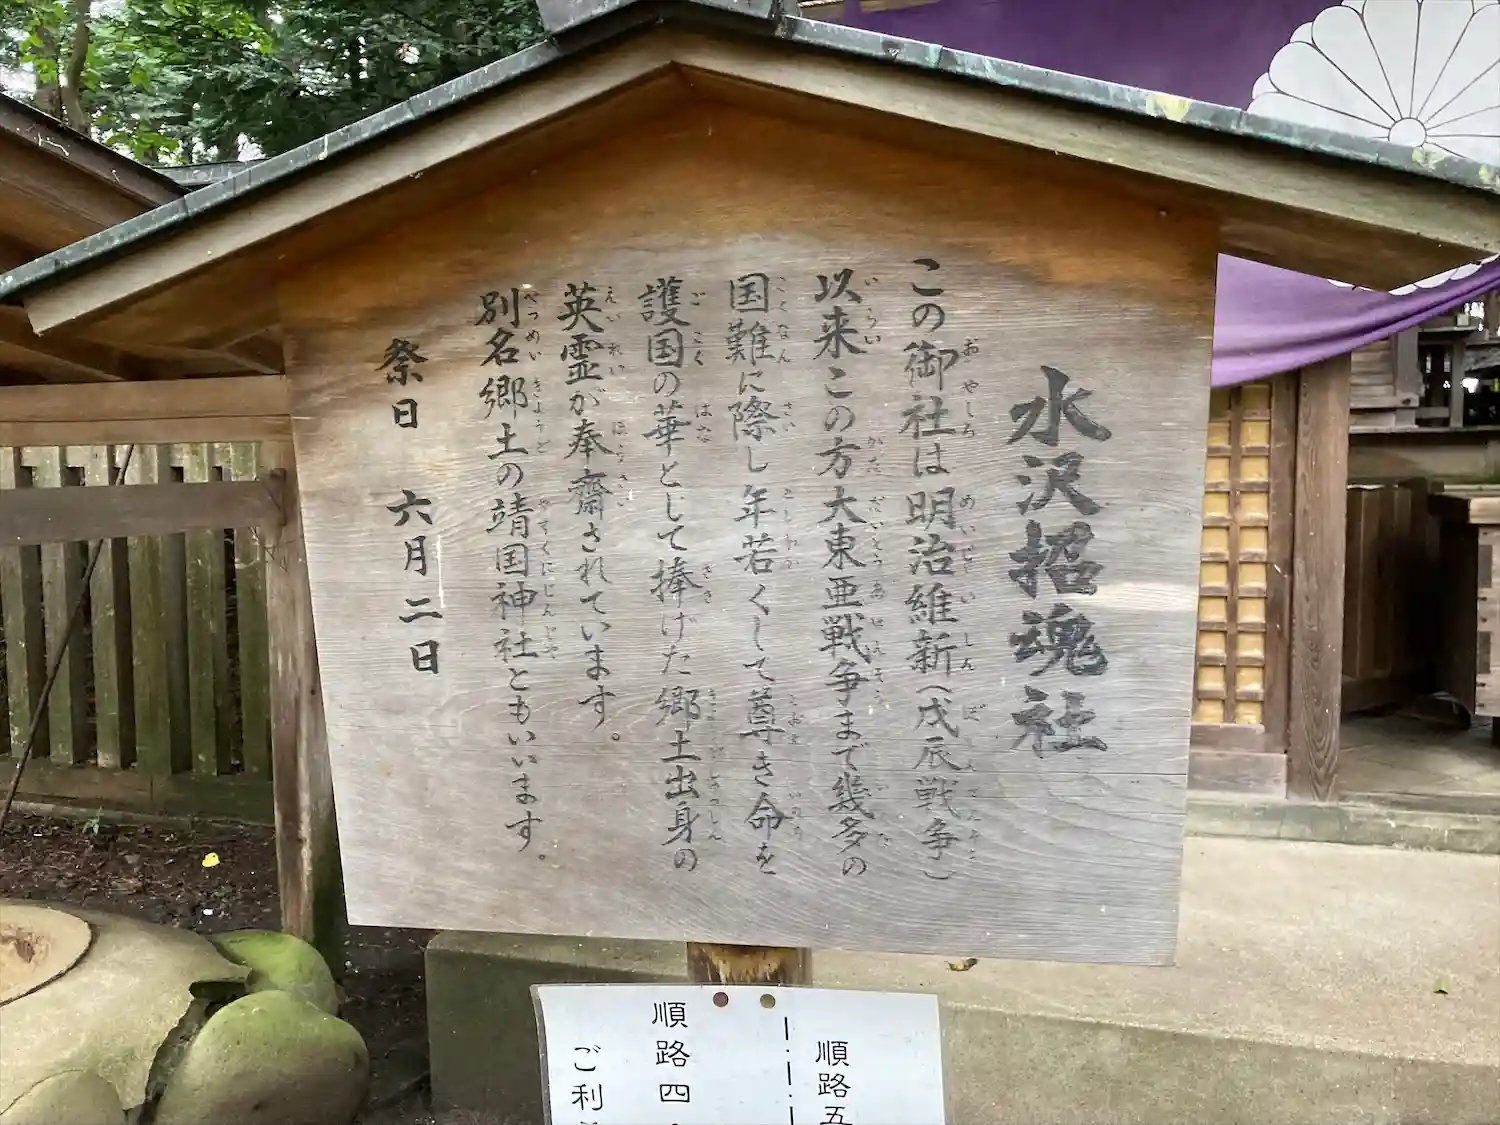 水沢招魂社
この御社は明治維新(戊辰戦争)
以来この方大東亜戦争まで幾多の
国難に際し年若くして尊き命を
護国の華として捧げた郷土出身の
英霊が奉齋されています。
別名郷土の靖国神社ともいいます。
祭日 六月二日
順路五
順路四
ご利